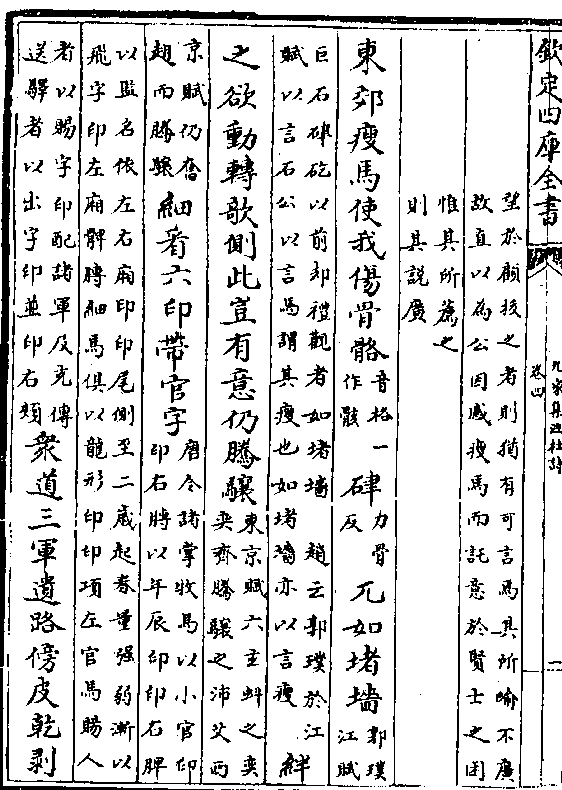 欽定四庫全書
九家集注杜詩
卷四
一
望於顧後之者則猶有可言為其所喻不廣
故直以為公因感瘦馬而託意於賢士之困
惟其所薦之
則其說廣
東郊瘦馬使我傷骨骼音格一作骸硉力骨反兀如堵墻郭璞江賦
巨石硉矹以前却禮觀者如堵墻趙云郭璞於江
賦以言石公以言馬謂其瘦也如堵墻亦以言瘦絆
之欲動轉欹側此豈有意仍騰驤東京賦六玄虯之奕奕齊騰驤之沛艾西
京賦仍奮趐而騰驤細看六印帶官字唐令諸掌牧馬以小官印印右膊以年辰印印右髀
以監名依左右廂印印尾側至二歲起脊量强弱漸以
飛字印左廂髀膊細馬俱以龍形印印項左官馬賜人
者以賜字印配諸軍及充傳送驛者以出字印並印右頰衆道三軍遺路傍皮乾剥